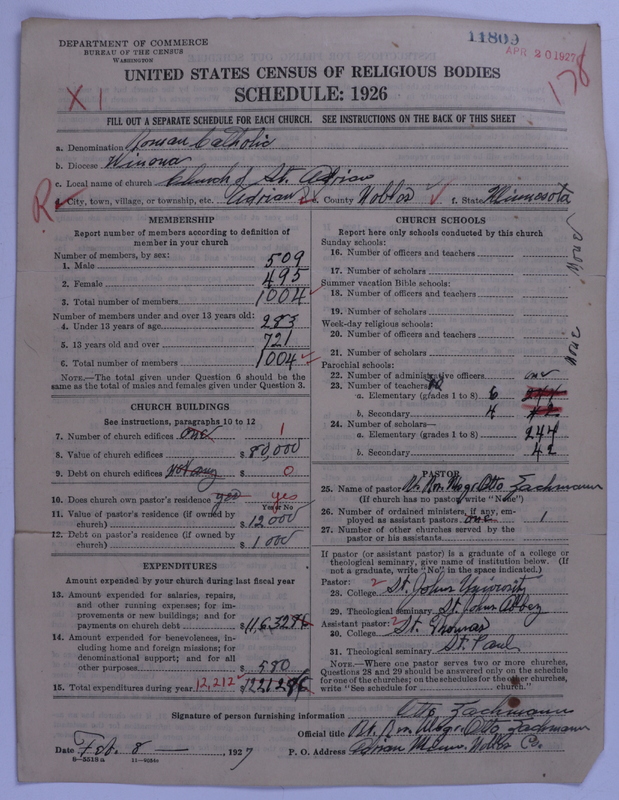 DEPARTMENT OF COMMERCE
BUREAU OF THE CENSUS
WASHINGTON
11809
APR 20 1927
178
X 1
UNITED STATES CENSUS OF RELIGIOUS BODIES
SCHEDULE: 1926
FILL OUT A SEPARATE SCHEDULE FOR EACH CHURCH. SEE INSTRUCTIONS ON THE BACK OF THIS SHEET
a. Denomination Roman Catholic
b. Diocese Winona
c. Local name of church Church of St. Adrian
d. City, town, village, or township, etc. Adrian e. County Nobles f. State Minnesota
MEMBERSHIP
Report number of members according to definition of
member in your church
Number of members, by sex:
1. Male 509
2. Female 495
3. Total number of members 1004
Number of members under and over 13 years old:
4. Under 13 years of age 283
5. 13 years old and over 721
6. Total number of members 1004
NOTE.—The total given under Question 6 should be
the same as the total of males and females given under Question 3.
CHURCH BUILDINGS
See instructions, paragraphs 10 to 12
7. Number of church edifices one 1
8. Value of church edifices $ 80,000
9. Debt on church edifices Not any $ 0
10. Does church own pastor's residence yes yes
Yes or No
11. Value of pastor's residence (if owned by
church) $ 12000
12. Debt on pastor's residence (if owned by
church) $ 1000
EXPENDITURES
Amount expended by your church during last fiscal year
13. Amount expended for salaries, repairs,
and other running expenses; for im-
provements or new buildings; and for
payments on church debt $ 11632
14. Amount expended for benevolences, in-
cluding home and foreign missions; for
denominational support; and for all
other purposes $ 580
15. Total expenditures during year 12,212 $ 12212
CHURCH SCHOOLS
Report here only schools conducted by this church
Sunday schools:
16. Number of officers and teachers
17. Number of scholars
Summer vacation Bible schools:
18. Number of officers and teachers
19. Number of scholars
None
Week-day religious schools:
20. Number of officers and teachers
21. Number of scholars
None
Parochial schools:
22. Number of administrative officers one
23. Number of teachers
a. Elementary (grades 1 to 8) 6 244
b. Secondary 4 42
24. Number of scholars—
a. Elementary (grades 1 to 8) 244
b. Secondary 42
PASTOR
25. Name of pastor Rt. Rev. Msgr. Otto Zachmann
(If church has no pastor, write "None")
26. Number of ordained ministers, if any, em-
ployed as assistant pastors one 1
27. Number of other churches served by the
pastor or his assistants
If pastor (or assistant pastor) is a graduate of a college or
theological seminary, give name of institution below. (If
not a graduate, write "No" in the space indicated.)
Pastor:
28. College 2 St. Johns University
29. Theological seminary St. Johns Abbey
Assistant pastor:
30. College 2 St. Thomas
31. Theological seminary St. Paul
NOTE.—Where one pastor serves two or more churches,
Questions 28 and 29 should be answered only on the schedule
for one of the churches; on the schedules for the other churches,
write "See schedule for church."
Signature of person furnishing information Otto Zachmann
Official title Rt. Rev. Msgr. Otto Zachmann
Date Feb. 8 — , 1927
P. O. Address Adrian Minn. Nobles Co.
8—5518 a 11—9034a